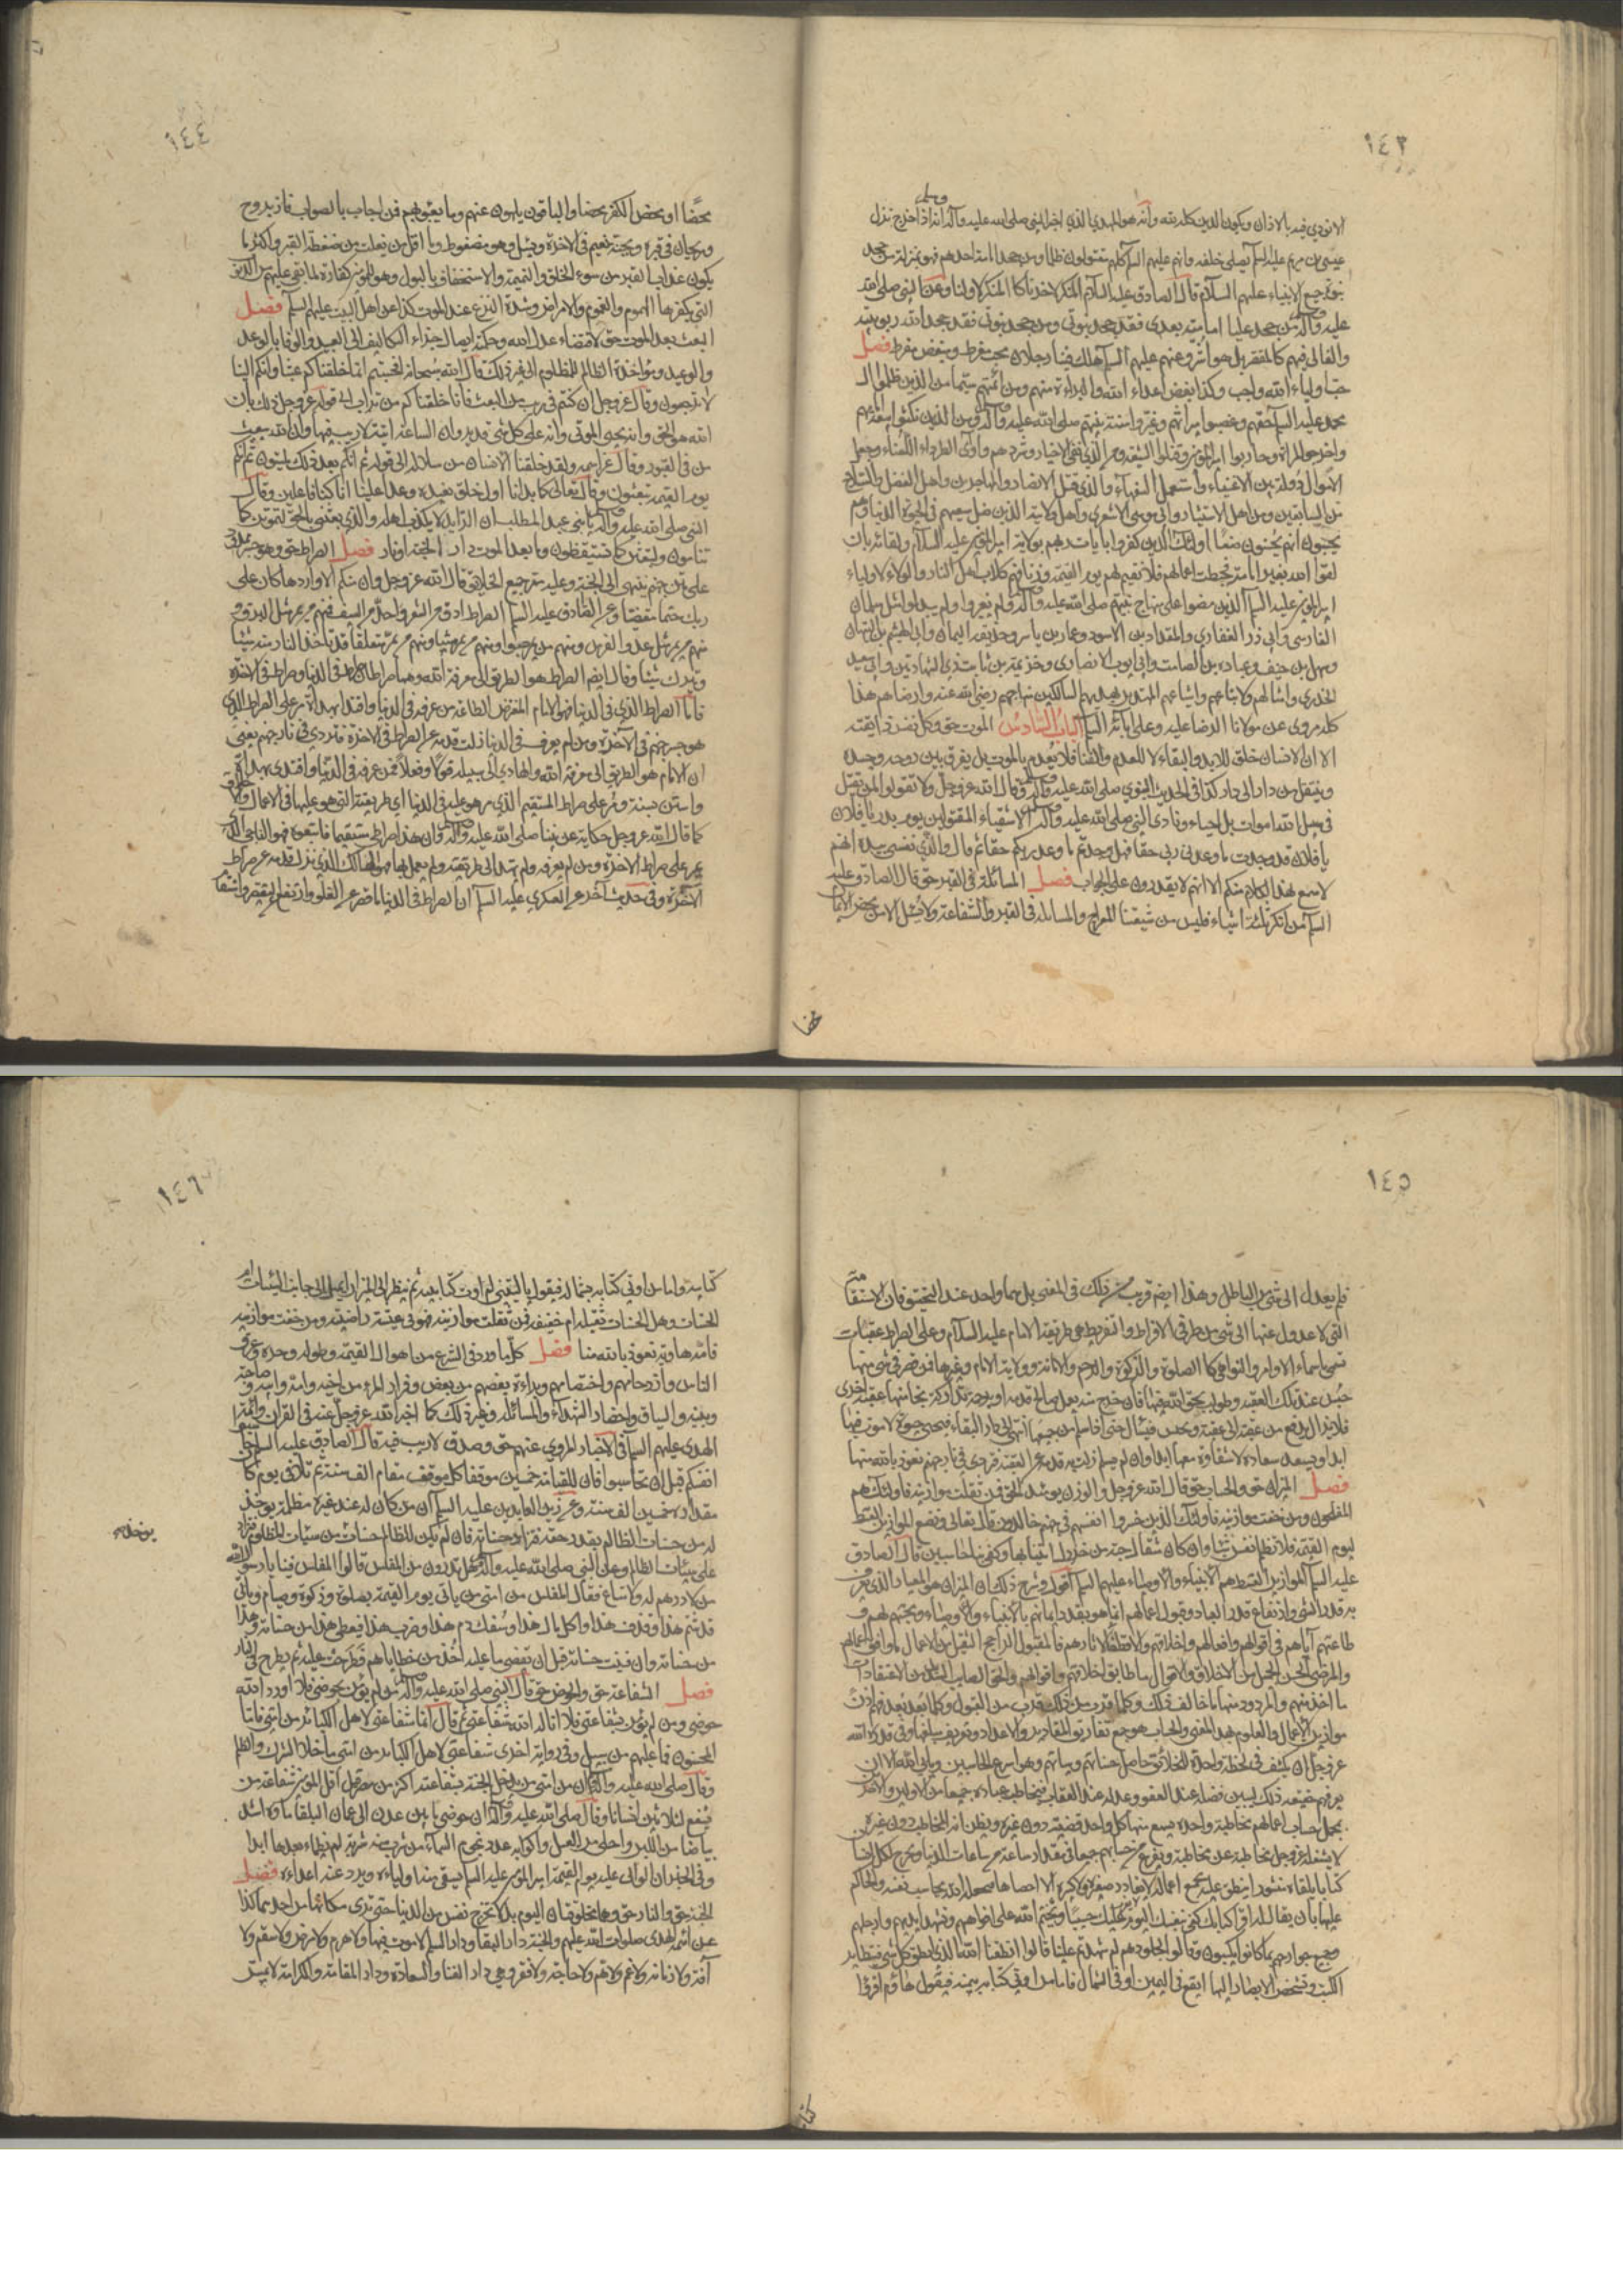 ١٤٣
الا نودي فيه بالاذان ويكون الدين كله لله وانه هو المهدي الذي اخبر النبي صلى الله عليه وآله انه اذا خرج نزل
عيسى بن مريم عليه السلم يصلي خلفه وانهم عليهم السلم كلهم مقتولون ظلما ومن جحد امامة احدهم فهو بمنزلة من جحد
نبوة جميع الانبياء عليهم السلام قال الصادق عليه السلام المنكر لاخرنا كالمنكر لاولنا وعن النبي صلى الله
عليه وآله من جحد عليا امامته بعدي فقد جحد نبوتي ومن جحد نبوتي فقد جحد الله ربوبيته
والغالي فيهم كالمقصر بل هو اشر وعنهم عليهم السلم هلك فينا رجلان محب مفرط ومبغض مفرط فصل
حب اولياء الله واجب وكذا بغض اعداء الله والبراءة منهم ومن ائمتهم سيما من الذين ظلموا آل
محمد عليه السلم حقهم وغصبوا ميراثهم وغيروا سنة نبيهم صلى الله عليه وآله ومن الذين نكثوا بيعة امامهم
واخرجوا المراة وحاربوا امير المؤمنين وقتلوا الشيعة ومن الذي نفى الاخيار وشردهم وآوى الطرداء اللعناء وجعل
الاموال دولة بين الاغنياء واستعمل السفهاء والذي قتل الانصار والمهاجرين واهل الفضل والصلاح
من السابقين ومن اهل الاستيثار وابي موسى الاشعري واهل ولايته الذين ضل سعيهم في الحيوة الدنيا وهم
يحسبون انهم يحسنون صنعا اولئك الذين كفروا بايات ربهم بولاية امير المؤمنين عليه السلام ولقائه بان
لقوا الله بغير امامته فحبطت اعمالهم فلا نقيم لهم يوم القيمة وزنا فهم كلاب اهل النار والولاء لاولياء
امير المؤمنين عليه السلم الذين مضوا على منهاج نبيهم صلى الله عليه وآله ولم يغيروا ولم يبدلوا مثل سلمان
الفارسي وابي ذر الغفاري والمقداد بن الاسود وعمار بن ياسر وحذيفة اليمان وابي الهيثم بن التيهان
وسهل بن حنيف وعبادة بن الصامت وابي ايوب الانصاري وخزيمة بن ثابت ذي الشهادتين وابي سعيد
الخدري وامثالهم ولاتباعهم واشياعهم المهتدين بهديهم السالكين منهاجهم رضي الله عنه وارضاهم هذا
كله مروي عن مولانا الرضا عليه وعلى آبائه السلم الباب السادس الموت حق وكل نفس ذائقته
الا ان الانسان خلق للابد والبقاء لا للعدم والفنا فلا يعدم بالموت بل يفرق بين روحه وجسده
وينتقل من دار الى دار كذا في الحديث النبوي صلى الله عليه وآله وقال الله عز وجل ولا تقولوا لمن يقتل
في سبيل الله اموات بل احياء ونادى النبي صلى الله عليه وآله الاشقياء المقتولين يوم بدر يا فلان
يا فلان قد وجدت ما وعدني ربي حقا فهل وجدتم ما وعد ربكم حقا ثم قال والذي نفسي بيده انهم
لاسمع لهذا الكلام منكم الا انهم لا يقدرون على الجواب فصل المسائلة في القبر حق قال الصادق عليه
السلم من انكر ثلثة اشياء فليس من شيعتنا المعراج والمسائلة في القبر والشفاعة ولا يسئل الا من محض الايمان
محضا
١٤٤
محضا او محض الكفر محضا والباقون يلهون عنهم وما يعبؤ بهم فمن اجاب بالصواب فاز بروح
وريحان في قبره وبجنة نعيم في الاخرة ويسئل وهو مضغوط وما اقل من يفلت من ضغطة القبر واكثر ما
يكون عذاب القبر من سوء الخلق والنميمة والاستخفاف بالبول وهو للمؤمن كفارة لما بقي عليهم من الذنوب
التي يكفرها الهموم والغموم والامراض وشدة النزع عند الموت كذا عن اهل البيت عليهم السلم فصل
البعث بعد الموت حق لاقتضاء عدل الله وحكمته ايصال جزاء التكاليف الى العبيد والوفا بالوعد
والوعيد ومؤاخذة الظالم للمظلوم الى غير ذلك قال الله سبحانه افحسبتم انما خلقناكم عبثا وانكم الينا
لا ترجعون وقال عز وجل ان كنتم في ريب من البعث فانا خلقناكم من تراب الى قوله عز وجل ذلك بان
الله هو الحق وانه يحيي الموتى وانه على كل شيء قدير وان الساعة اتية لا ريب فيها وان الله يبعث
من في القبور وقال عز اسمه ولقد خلقنا الانسان من سلالة الى قوله ثم انكم بعد ذلك لميتون ثم انكم
يوم القيمة تبعثون وقال تعالى كما بدانا اول خلق نعيده وعدا علينا انا كنا فاعلين وقال
النبي صلى الله عليه وآله يا بني عبد المطلب ان الرايد لا يكذب اهله والذي بعثني بالحق لتموتن كما
تنامون ولتبعثن كما تستيقظون وما بعد الموت دار الا جنة او نار فصل الصراط حق وهو جسر ممدود
على متن جهنم ينتهي الى الجنة وعليه مر جميع الخلايق قال الله عز وجل وان منكم الا واردها كان على
ربك حتما مقضيا وعن الصادق عليه السلم الصراط ادق من الشعر واحد من السيف فمنهم من يمر مثل البرق و
منهم من يمر مثل عدو الفرس ومنهم من يمر حبوا ومنهم من يمر مشيا ومنهم من يمر متعلقا قد تاخذ النار منه شيئا
وتترك شيئا وقال ايضا الصراط هو الطريق الى معرفة الله وهما صراطان صراط في الدنيا وصراط في الاخرة
فاما الصراط الذي في الدنيا فهو الامام المفترض الطاعة من عرفه في الدنيا واقتدى بهداه مر على الصراط الذي
هو جسر جهنم في الآخرة ومن لم يعرفه في الدنيا زلت قدمه عن الصراط في الاخرة فتردى في نار جهنم يعني
ان الامام هو الطريق الى معرفة الله والهادي الى سبيله قولا وفعلا فمن عرفه في الدنيا واقتدى بهداه
واستن بسنته ومر على صراطه المستقيم الذي مر هو عليه في الدنيا اي طريقته التي هو عليها في الاعمال والاخلاق
كما قال الله عز وجل حكاية عن نبينا صلى الله عليه وآله وان هذا صراطي مستقيما فاتبعوه فهو الناجي الذي
يمر على صراط الاخرة ومن لم يعرفه ولم يهتد الى طريقته ولم يعمل بها فهو الهالك الذي يزل قدمه عن صراط
الآخرة وفي حديث آخر عن العسكري عليه السلم ان الصراط في الدنيا ما قصر عن الغلو وارتفع عن التقصير واستقام
١٤٥
فلم يعدل الى شيء من الباطل وهذا ايضا قريب من ذلك في المعنى بل هما واحد عند التحقيق فان الاستقامة
التي لا عدول عنها الى شيء من طرفي الافراط والتفريط هي طريقة الامام عليه السلام وعلى الصراط عقبات
تسمى باسماء الاوامر والنواهي كالصلوة والزكوة والرحم والامانة وولاية الامام وغيرها فمن قصر في شيء منها
حبس عند تلك العقبة وطولب بحق الله فيها فان خرج منه بعمل صالح قدمه او برحمة تداركته نجا منها الى عقبة اخرى
فلا يزال يدفع من عقبة الى عقبة ويحبس فيسال حتى اذا سلم من جميعها انتهى الى دار البقاء فيحيى حيوة لا موت فيها
ابدا ويسعد سعادة لا شقاوة معها ابدا وان لم يسلم زلت به قدمه عن العقبة فتردى في نار جهنم نعوذ بالله منها
فصل الميزان حق والحساب حق قال الله عز وجل والوزن يومئذ الحق فمن ثقلت موازينه فاولئك هم
المفلحون ومن خفت موازينه فاولئك الذين خسروا انفسهم في جهنم خالدون قال تعالى ونضع الموازين القسط
ليوم القيمة فلا تظلم نفس شيئا وان كان مثقال حبة من خردل اتينا بها وكفى بنا حاسبين قال الصادق
عليه السلم الموازين القسط هم الانبياء والاوصياء عليهم السلم اقول وشرح ذلك ان الميزان هو المعيار الذي يعرف
به قدر الشيء وارتفاع قدر العباد وقبول اعمالهم انما هو بقدر ايمانهم بالانبياء والاوصياء ومحبتهم لهم و
طاعتهم اياهم في اقوالهم وافعالهم واخلاقهم والاقتفاء لاثارهم فالمقبول الراجح الثقيل من الاعمال ما وافق اعمالهم
والمرضي الحسن الجميل من الاخلاق والاقوال ما طابق اخلاقهم واقوالهم والحق الصايب من الاعتقادات
ما اخذ منهم والمردود منها ما خالف ذلك وكلما قرب من ذلك قرب من القبول وكلما بعد بعد فهم اذن
موازين الاعمال والعلوم بهذا المعنى والحساب هو جمع تفاريق المقادير والاعداد وتعريف مبلغها وفي قدرة الله
عز وجل ان يكشف في لحظة واحدة للخلائق حاصل حسناتهم وسيئاتهم وهو اسرع الحاسبين ويابى الله الا ان
يعرفهم حقيقة ذلك ليبين فضله عند العفو وعدله عند العقاب فيخاطب عباده جميعا من الاولين والاخرين
بمجمل حساب اعمالهم مخاطبة واحدة يسمع منها كل واحد قضيته دون غيره ويظن انه المخاطب دون غيره
لا يشغله عز وجل مخاطبة عن مخاطبة ويفرغ من حسابهم جميعا في مقدار ساعة من ساعات الدنيا ويخرج لكل انسان
كتابا يلقاه منشورا ينطق عليه بجميع اعماله لا يغادر صغيرة ولا كبيرة الا احصاها فيجعله الله محاسب نفسه والحاكم
عليها بان يقال له اقرا كتابك كفى بنفسك اليوم عليك حسيبا ويختم الله على افواههم وتشهد ايديهم وارجلهم
وجميع جوارحهم بما كانوا يكسبون وقالوا لجلودهم لم شهدتم علينا قالوا انطقنا الله الذي انطق كل شيء فتتطاير
الكتب وتشخص الابصار اليها ايقع في اليمين او في الشمال فاما من اوتي كتابه بيمينه فيقول هاؤم اقرؤا
كتابيه
١٤٦
كتابيه واما من اوتي كتابه بشماله فيقول يا ليتني لم اوت كتابيه ثم ينظر الى الميزان ايميل الى جانب السيئات ام
الحسنات وهل الحسنات ثقيلة ام خفيفة فمن ثقلت موازينه فهو في عيشة راضية ومن خفت موازينه
فامه هاوية نعوذ بالله منها فصل كل ما ورد في الشرع من اهوال القيمة وطولها وحرها وعرق
الناس وازدحامهم واختصامهم وبراءة بعضهم من بعض وفرار المرء من اخيه وامه وابيه وصاحبته
وبنيه والسياق واحضار الشهداء والمسائلة وغير ذلك كما اخبر الله عز وجل عنه في القران وائمة
الهدى عليهم السلم في الاخبار المروي عنهم حق وصدق لا ريب فيه قال الصادق عليه السلم حاسبوا
انفسكم قبل ان تحاسبوا فان للقيامة خمسين موقفا كل موقف مقام الف سنة ثم تلا في يوم كان
مقداره خمسين الف سنة وعن زين العابدين عليه السلم ان من كان له عند غيره مظلمة يوخذ
له من حسنات الظالم بقدر حقه فتزاد حسناته فان لم يكن للظالم حسنات من سيئات المظلوم تزاد
على سيئات الظالم وعن النبي صلى الله عليه وآله هل تدرون من المفلس قالوا المفلس فينا يا رسول الله
من لا درهم له ولا متاع فقال المفلس من امتي من ياتي يوم القيمة بصلوة وزكوة وصيام وياتي
قد شتم هذا وقذف هذا واكل مال هذا وسفك دم هذا وضرب هذا فيعطى هذا من حسناته وهذا
من حسناته وان فنيت حسناته قبل ان تقضى ما عليه اخذ من خطاياهم فطرحت عليه ثم يطرح في النار
فصل الشفاعة حق والحوض حق قال النبي صلى الله عليه وآله من لم يؤمن بحوضي فلا اورده الله
حوضي ومن لم يؤمن بشفاعتي فلا اناله الله شفاعتي ثم قال انما شفاعتي لاهل الكبائر من امتي فاما
المحسنون فما عليهم من سبيل وفي رواية اخرى شفاعتي لاهل الكبائر من امتي ما خلا الشرك والظلم
وقال صلى الله عليه وآله ان من امتي من يدخل الجنة بشفاعته اكثر من مضر قيل اقل المؤمنين شفاعة من
يشفع لثلاثين انسانا وقال صلى الله عليه وآله ان حوضي ما بين عدن الى عمان البلقا ماؤه اشد
بياضا من اللبن واحلى من العسل واكوابه عدد نجوم السماء من شرب منه شربة لم يظماء بعدها ابدا
وفي الخبر ان الوالي عليه يوم القيمة امير المؤمنين عليه السلم يسقي منه اولياءه ويرد عنه اعداءه فصل
الجنة حق والنار حق وهما مخلوقتان اليوم بل لا تخرج نفس من الدنيا حتى ترى مكانها من احدهما كذا
عن ائمة الهدى صلوات الله عليهم والجنة دار البقا ودار السلم لا موت فيها ولا هرم ولا مرض ولا سقم ولا
آفة ولا زمانة ولا غم ولا هم ولا حاجة ولا فقر وهي دار الغنا والسعادة ودار المقامة والكرامة لا يمس
يوخذ